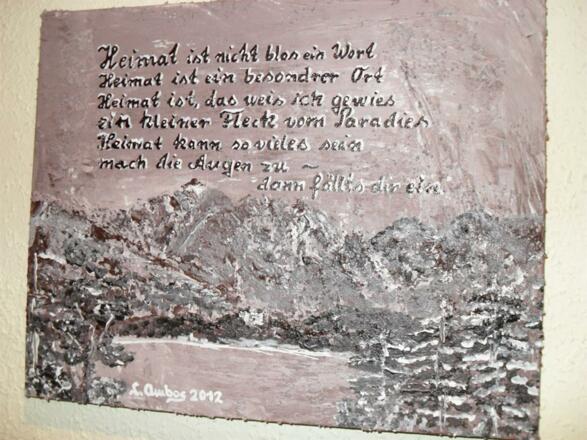 Heimat ist nicht blos ein Wort
Heimat ist ein besondrer Ort
Heimat ist, das weis ich gewies
ein kleiner Fleck vom Paradies
Heimat kann so vieles sein
mach die Augen zu ~
dann fällts dir ein.
L. Ambos 2012